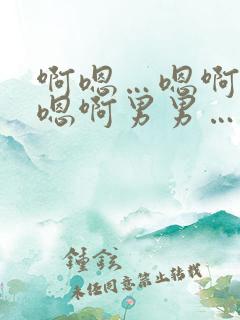 啊嗯…嗯啊
嗯啊男男…
锺铉
未经同意禁止转载